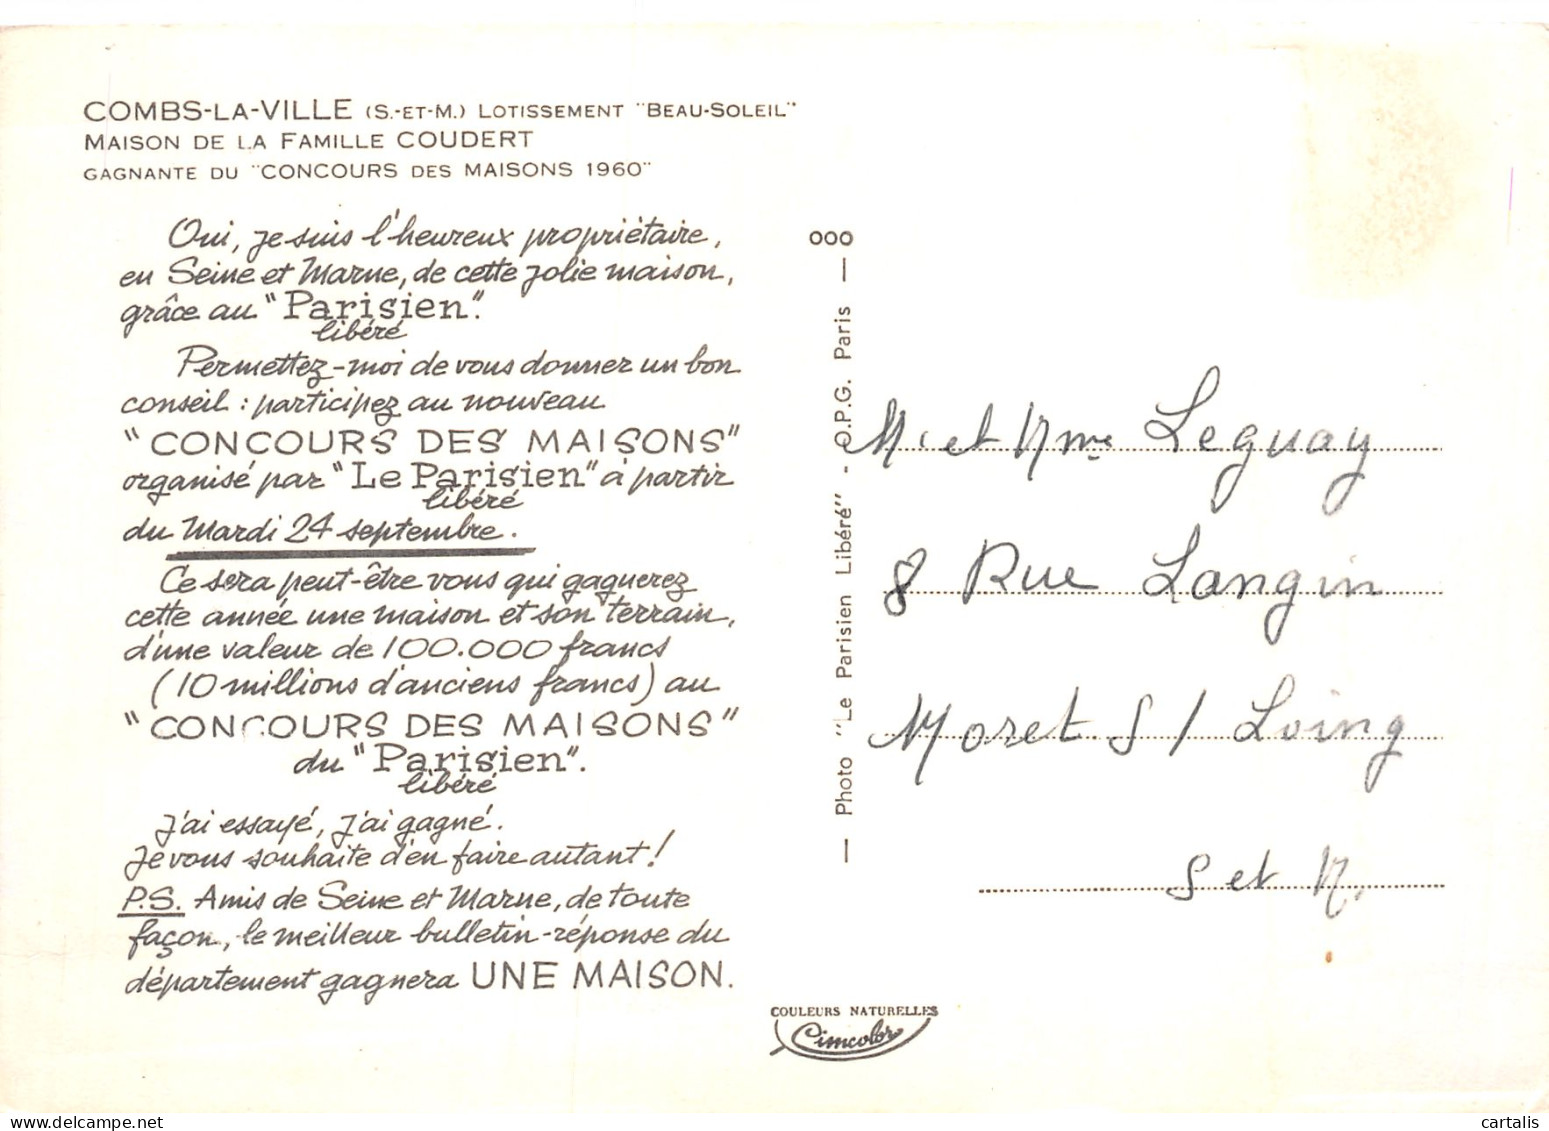 COMBS-LA-VILLE (S.-ET-M.) LOTISSEMENT "BEAU-SOLEIL"
MAISON DE LA FAMILLE COUDERT
GAGNANTE DU "CONCOURS DES MAISONS 1960"
Oui, je suis l'heureux propriétaire,
en Seine et Marne, de cette jolie maison,
grâce au "Parisien".
libéré
Permettez-moi de vous donner un bon
conseil : participez au nouveau
"CONCOURS DES MAISONS"
organisé par "Le Parisien" à partir
libéré
du Mardi 24 septembre.
Ce sera peut-être vous qui gagnerez
cette année une maison et son terrain,
d'une valeur de 100.000 francs
(10 millions d'anciens francs) au
"CONCOURS DES MAISONS"
du "Parisien".
libéré
J'ai essayé, j'ai gagné.
Je vous souhaite d'en faire autant !
P.S. Amis de Seine et Marne, de toute
façon, le meilleur bulletin-réponse du
département gagnera UNE MAISON.
000
— Photo "Le Parisien Libéré" - O.P.G. Paris —
M. et Mme Leguay
8 Rue Langin
Moret S/ Loing
S et M.
COULEURS NATURELLES
Cimcolor
cartalis